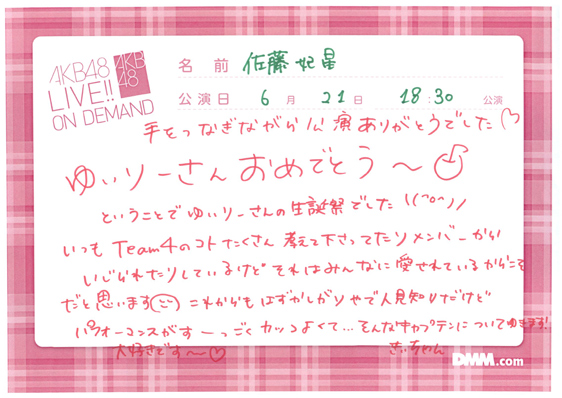 AKB48
LIVE!!
ON DEMAND
AKB
48
名 前 佐藤妃星
公演日 6月 21日 18:30 公演
手をつなぎながら公演ありがとうでした♡
ゆいりーさんおめでとう〜
ということでゆいりーさんの生誕祭でした\\(^o^)//
いつもTeam4のコトたくさん考えて下さってたりメンバーから
いじられたりしているけどそれはみんなに愛されているからこそ
だと思います これからもはずかしがりやで人見知りだけど
パフォーマンスがすーっごくカッコよくて...そんなキャプテンについてゆきます!
大好きです〜♡ きぃちゃん
DMM.com